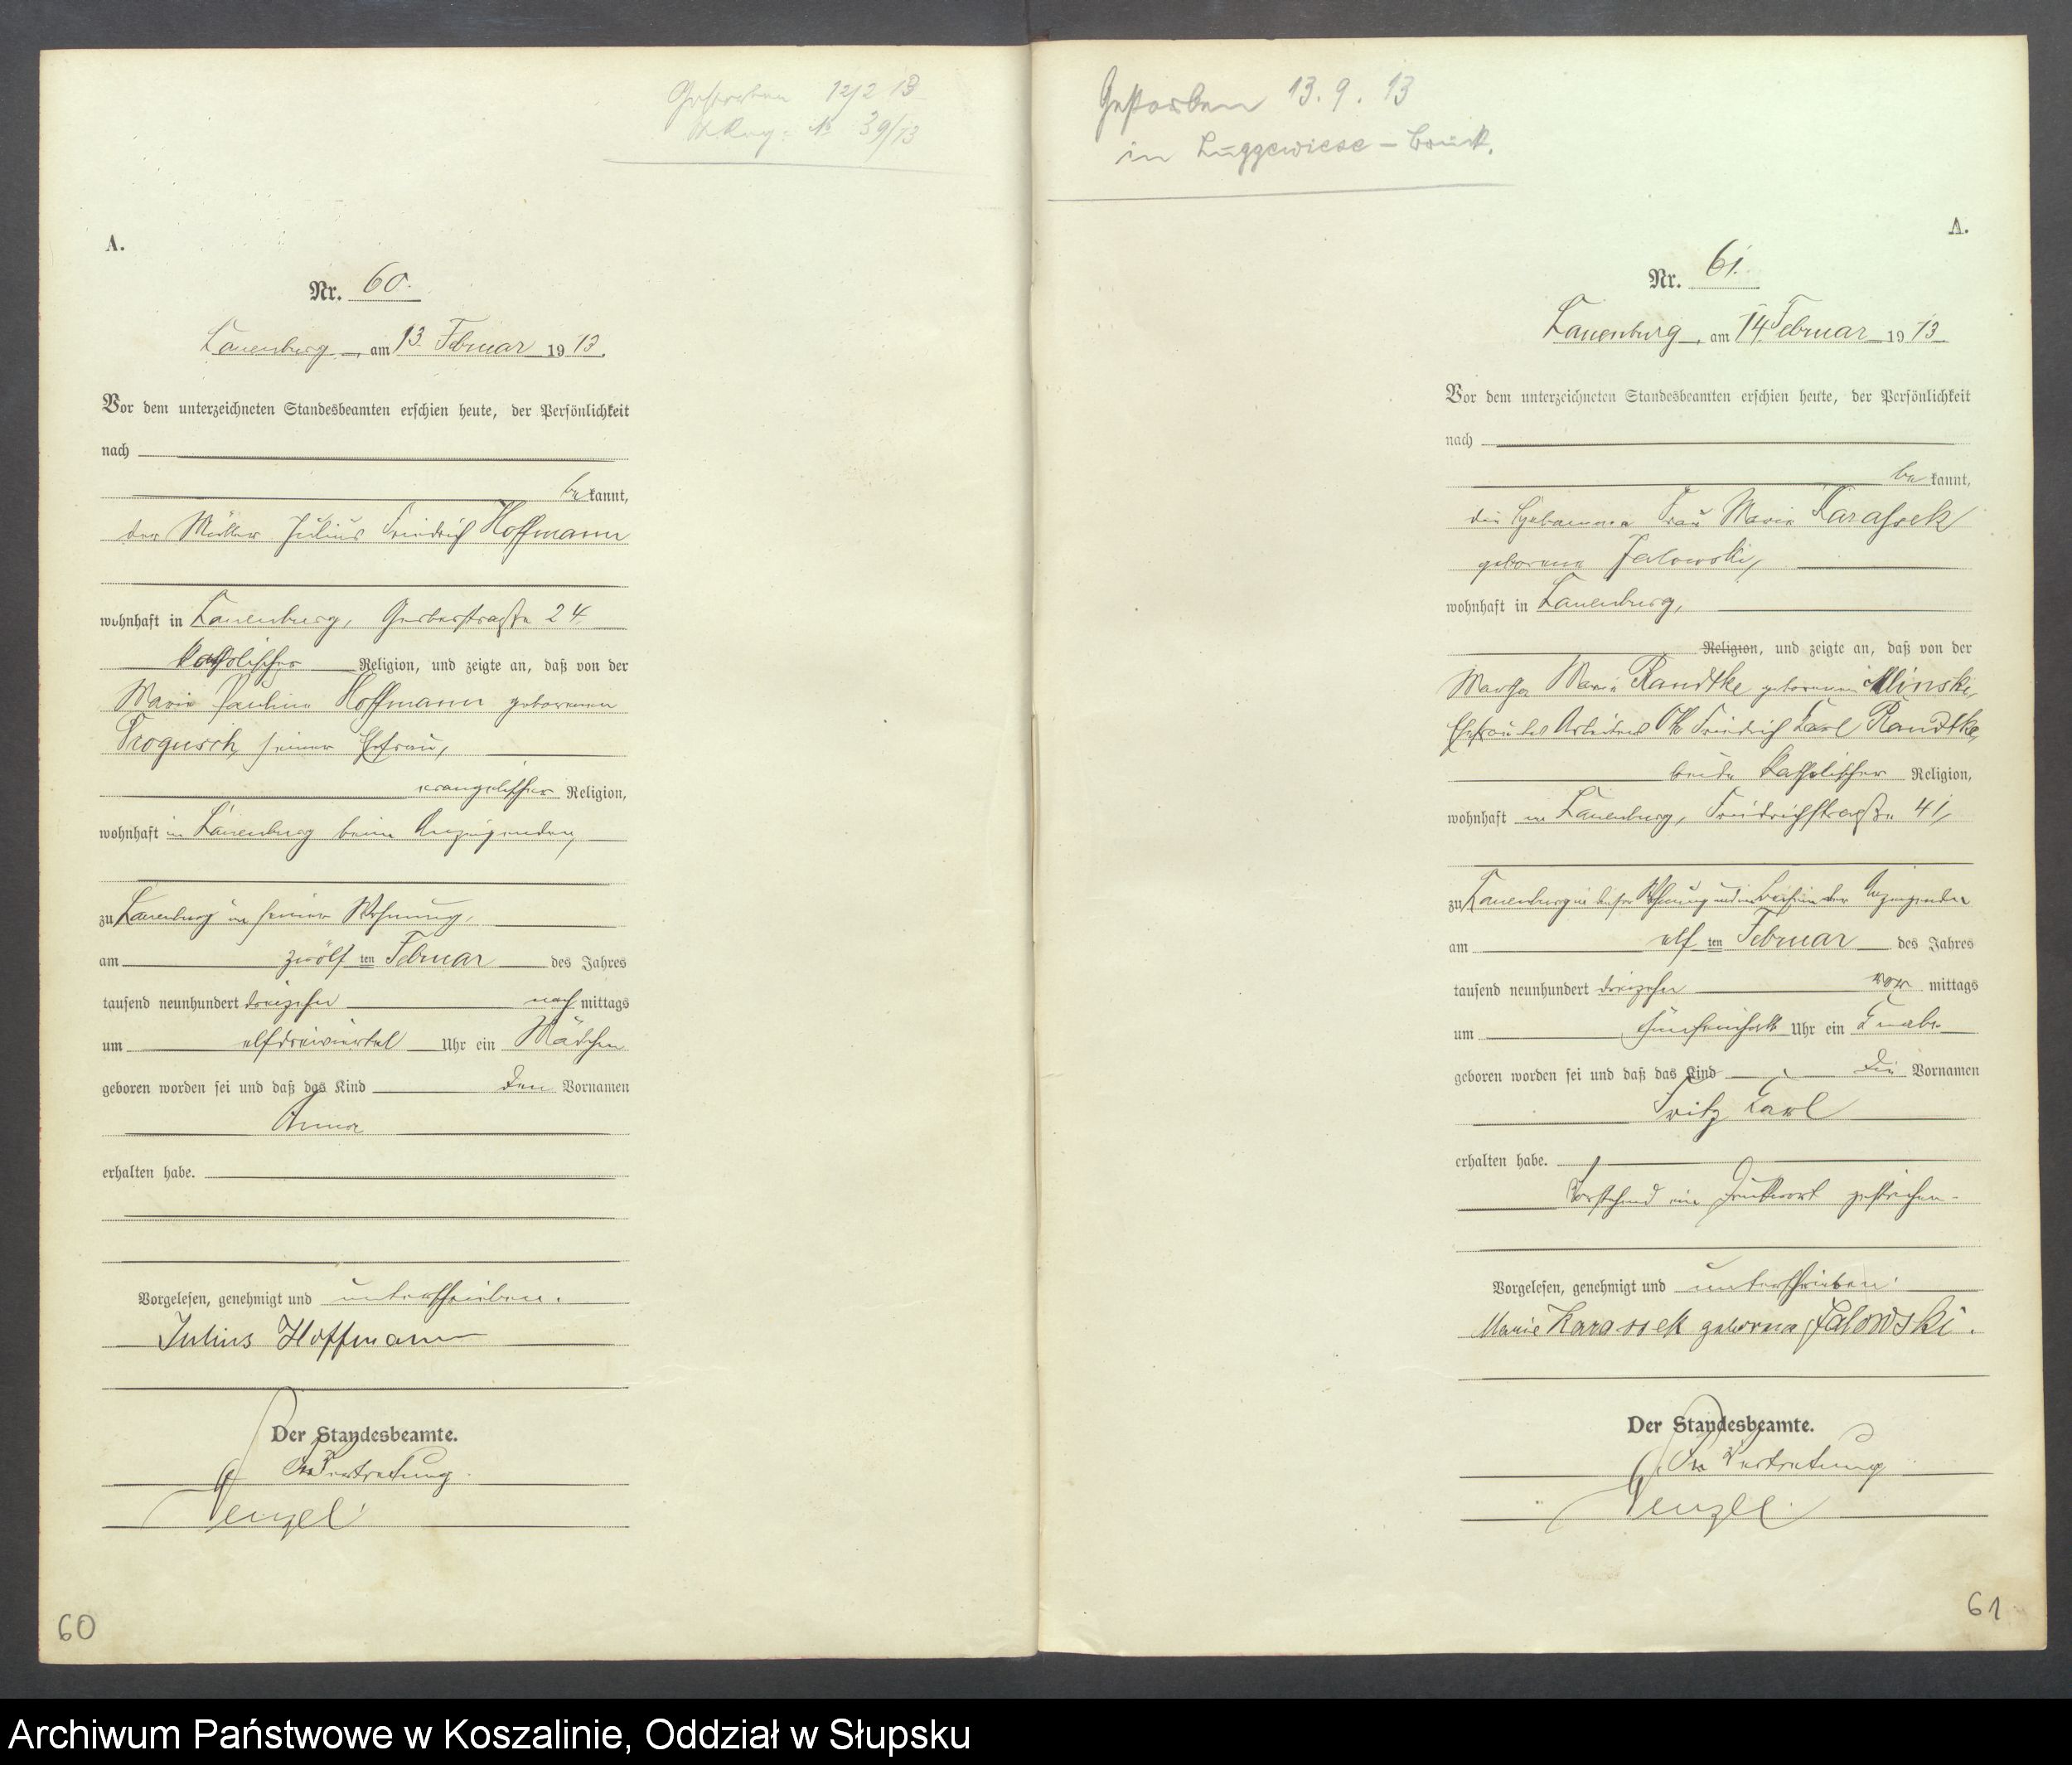 Gestorben 12/2 13
No 39/13
A.
Nr. 60.
Lauenburg, am 13. Februar 1913.
Vor dem unterzeichneten Standesbeamten erschien heute, der Persönlichkeit
nach
be kannt,
der Müller Julius Friedrich Hoffmann
wohnhaft in Lauenburg, Gerberstraße 24.
katholischer Religion, und zeigte an, daß von der
Marie Pauline Hoffmann geborenen
Progusch, seiner Ehefrau,
evangelischer Religion,
wohnhaft in Lauenburg beim Anzeigenden,
zu Lauenburg in seiner Wohnung,
am zwölf ten Februar des Jahres
tausend neunhundert dreizehn nach mittags
um elfdreiviertel Uhr ein Mädchen
geboren worden sei und daß das Kind den Vornamen
Anna
erhalten habe.
Vorgelesen, genehmigt und unterschrieben.
Julius Hoffmann
Der Standesbeamte.
In Vertretung.
Wenzel
60
Gestorben 13.9.13
in Luggewiese – Brück.
A.
Nr. 61.
Lauenburg, am 14. Februar 1913
Vor dem unterzeichneten Standesbeamten erschien heute, der Persönlichkeit
nach
be kannt,
die Hebamme Frau Marie Karassek
geborene Jalowski,
wohnhaft in Lauenburg,
Religion, und zeigte an, daß von der
Martha Marie Randtke geborenen Mlinski,
Ehefrau des Arbeiters Otto Friedrich Karl Randtke,
beide katholischer Religion,
wohnhaft in Lauenburg, Friedrichstraße 41,
zu Lauenburg in dieser Wohnung und im Beisein der Anzeigenden
am elf ten Februar des Jahres
tausend neunhundert dreizehn vor mittags
um fünfeinhalb Uhr ein Knabe
geboren worden sei und daß das Kind die Vornamen
Fritz Karl
erhalten habe.
Vorstehend ein Druckwort gestrichen.
Vorgelesen, genehmigt und unterschrieben.
Marie Karassek geborene Jalowski.
Der Standesbeamte.
In Vertretung
Wenzel
61
Archiwum Państwowe w Koszalinie, Oddział w Słupsku